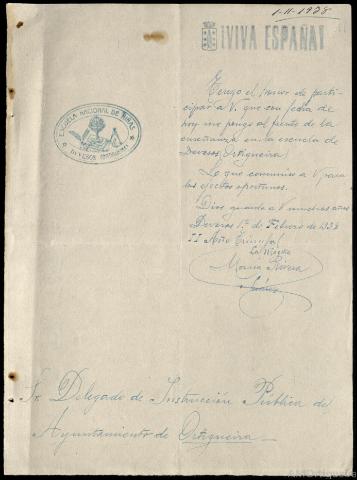 1-II-1938
¡VIVA ESPAÑA!
ESCUELA NACIONAL DE NIÑAS
DEVESOS (ORTIGUEIRA)
Tengo el honor de parti-
cipar a V. que con fecha de
hoy me pongo al frente de la
enseñanza en la escuela de
Devesos (Ortigueira)
Lo que comunico a V para
los efectos oportunos.
Dios guarde a V muchos años
Devesos 1º de Febrero de 1938
II Año Triunfal
La Maestra
María Rivera
Sr. Delegado de Instrucción Pública de
Ayuntamiento de Ortigueira